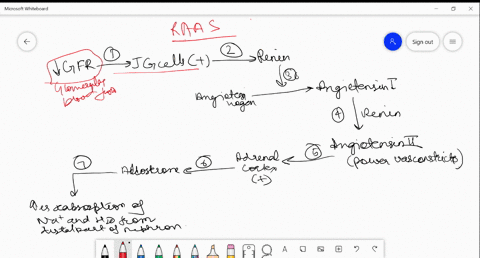 Microsoft Whiteboard
Sign out
RAAS
↓GFR ① → JG cells (+) ② → Renin
Glomerular
blood flow
③
Angiotensinogen → Angiotensin I
④ Renin
Angiotensin II
(power vasconstrictor)
⑤
Adrenal
cortex
(+)
⑥
Aldostrone
⑦
Na+ and H2O from
distal part of nephron